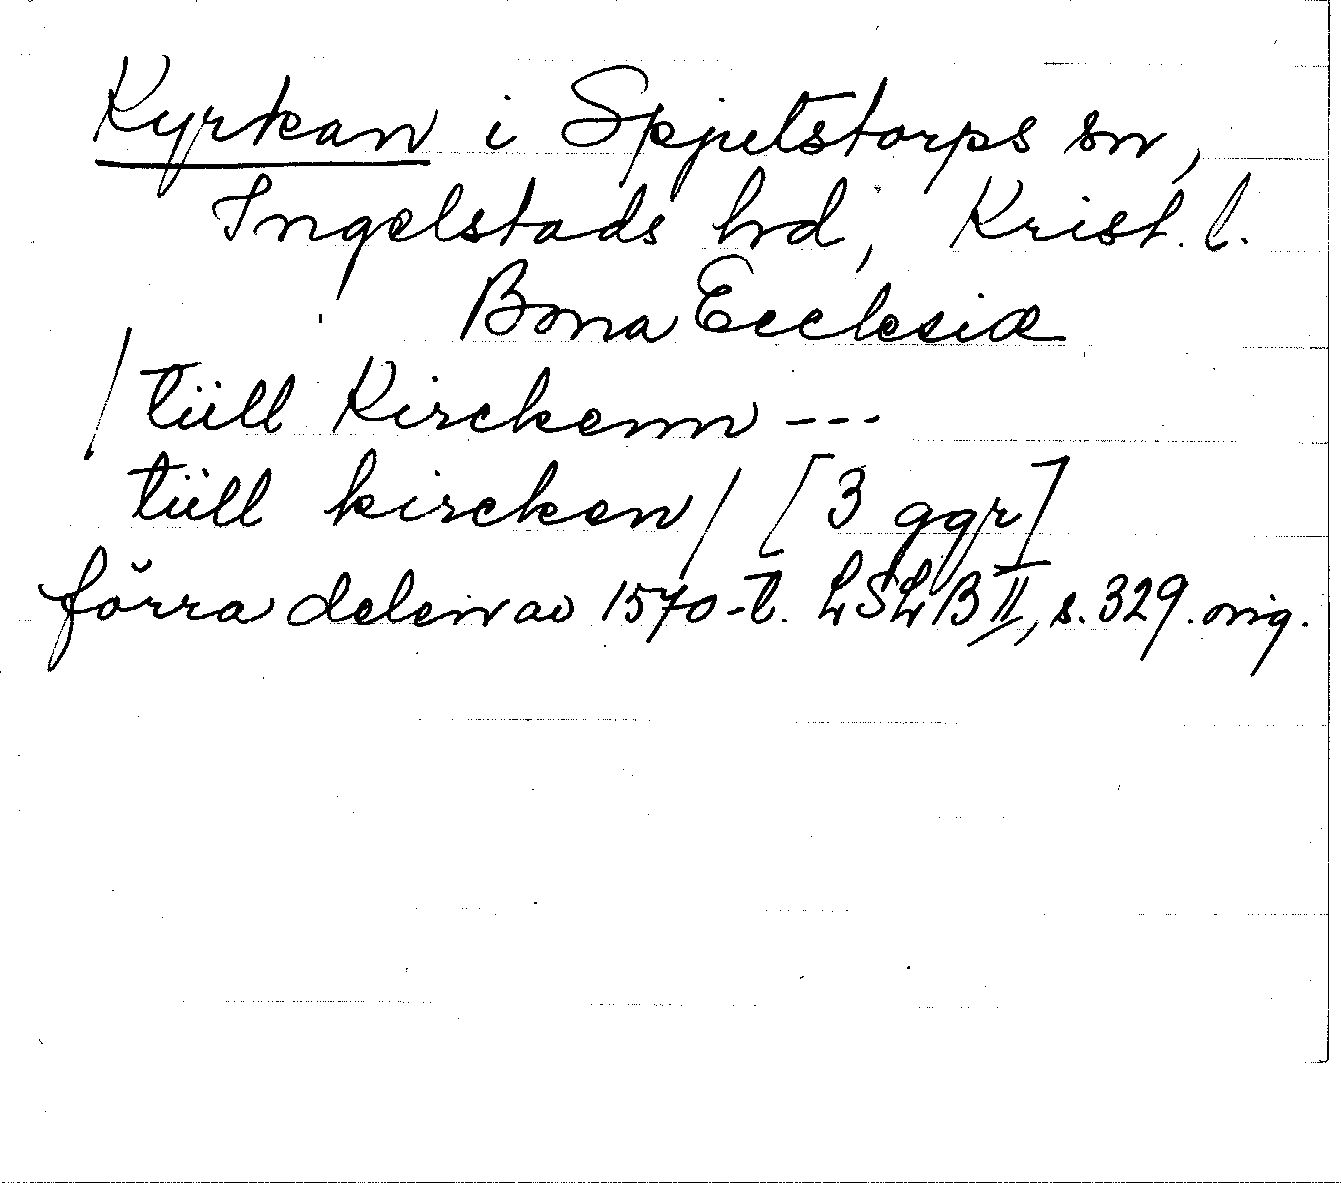 Kyrkan i Spjutstorps sn,
Ingelstads hd, Krist. l.
Bona Ecclesiæ
/ tüll Kirckenn ---
tüll kircken / [3 ggr]
förra delen av 1570-t. LSLB II, s. 329. orig.